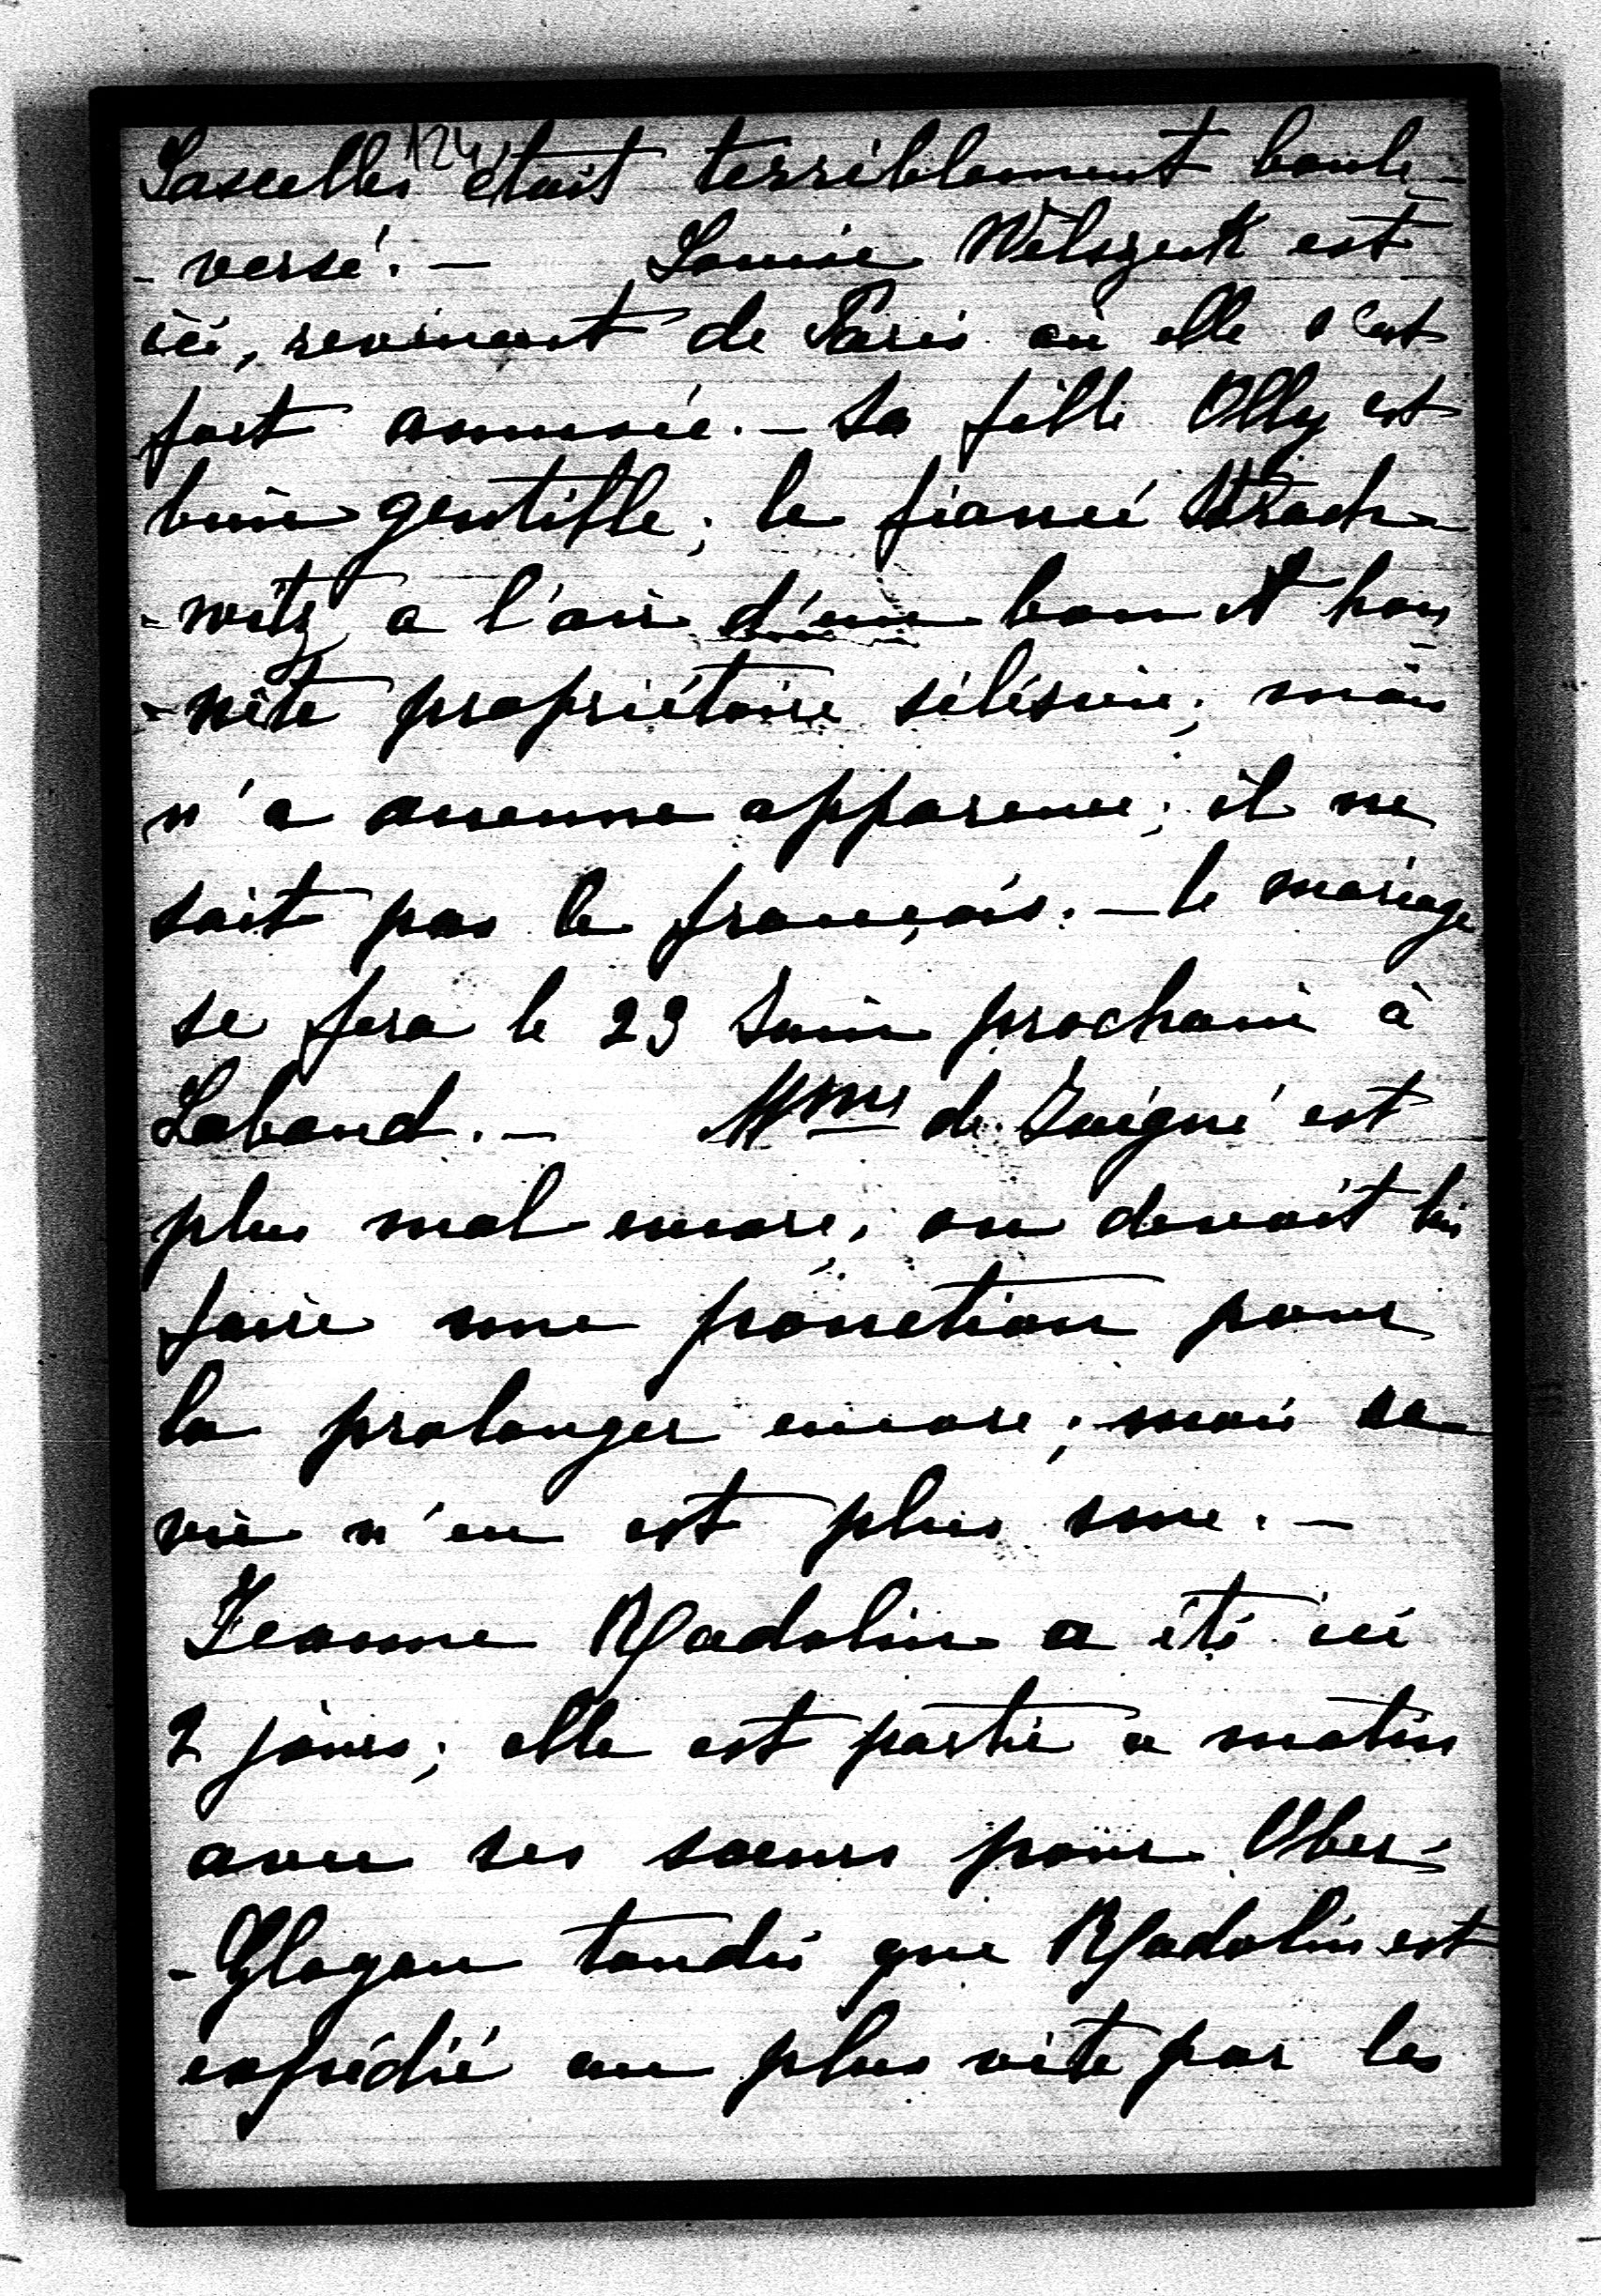 124
Lascelles était terriblement boule-
-versé. — Louise Welszeck est
ici, revenant de Paris où elle s'est
fort amusée. — Sa fille Olly est
bien gentille; le fiancé Strach-
-witz a l'air d'un bon et hon-
-nête propriétaire silésien; mais
n'a aucune apparence; il ne
sait pas le français. — Le mariage
se fera le 23 Juin prochain à
Laband. — Mme de Saigné est
plus mal encore, on devait lui
faire une ponction pour
la prolonger encore; mais sa
vie n'en est plus une. —
Jeanne Radolin a été ici
2 jours; elle est partie ce matin
avec ses soeurs pour Ober-
-Glogau tandis que Radolin est
expédié au plus vite par les